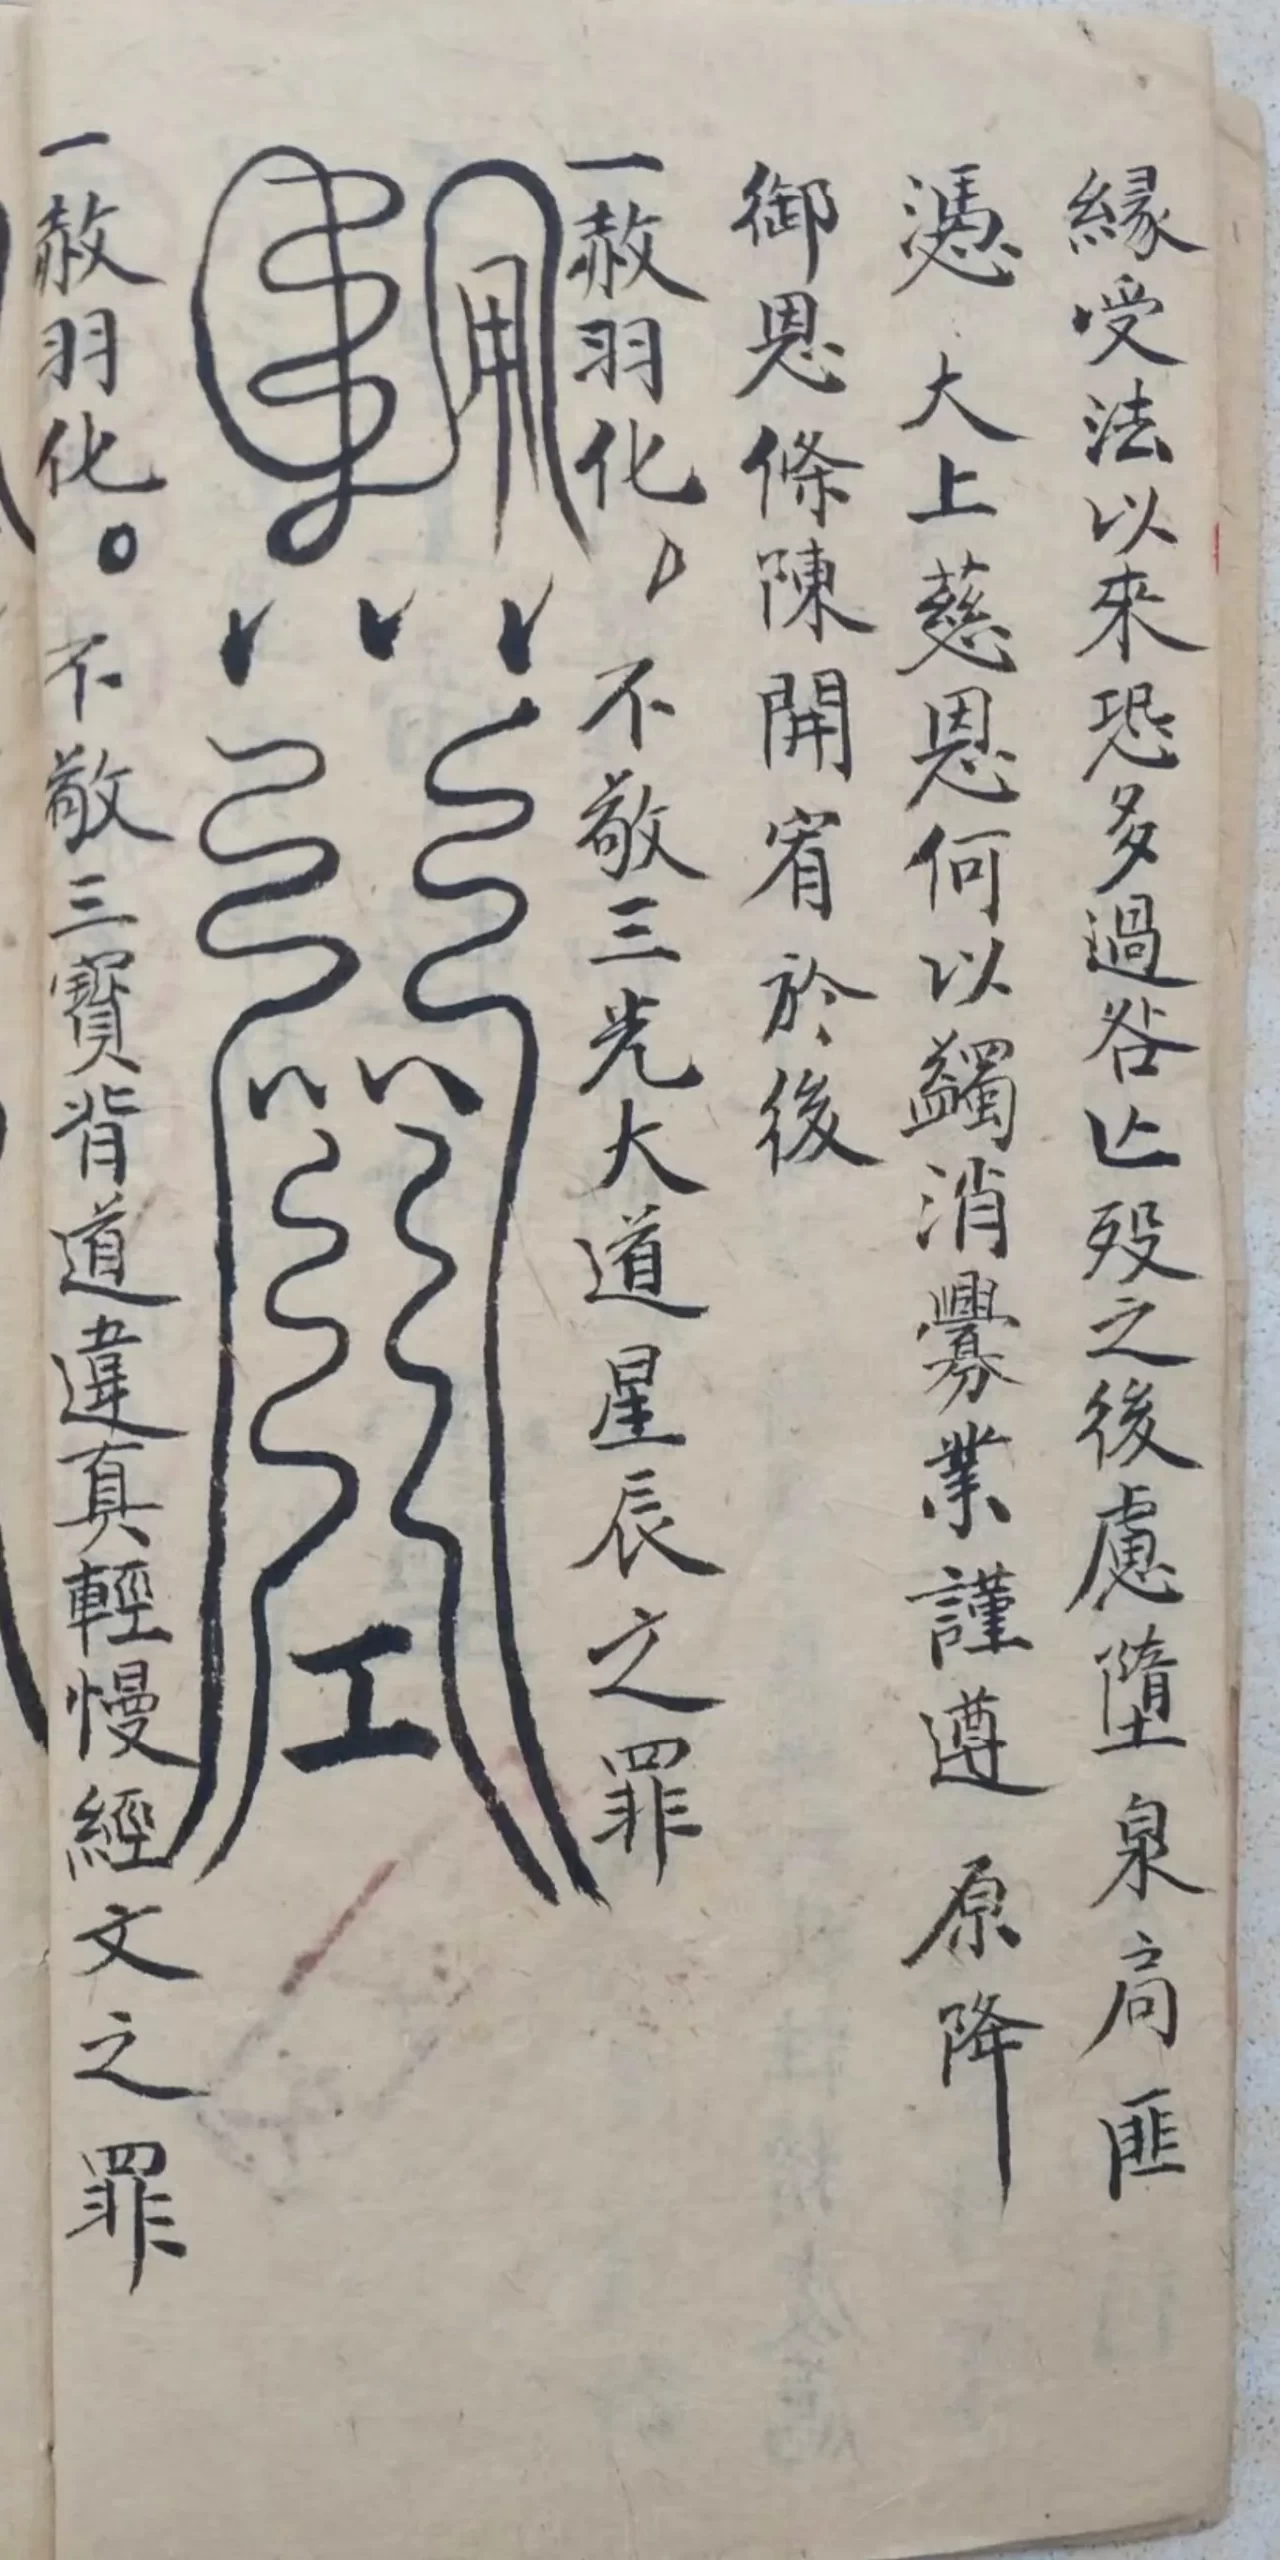 緣受法以來恐多過咎亡歿之後慮墮泉扃匪
憑 大上慈恩何以蠲消釁業謹遵 原降
御恩條陳開宥於後
一赦羽化。不敬三光大道星辰之罪
一赦羽化。不敬三寶背道違真輕慢經文之罪